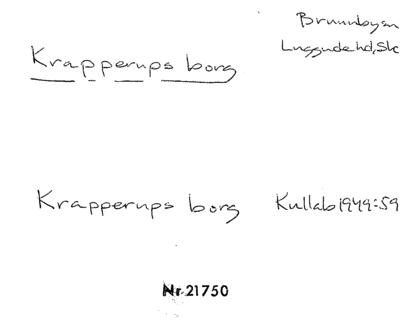 Brunnbyn
Luggude hd, Sk
Krapperups borg
Krapperups borg Kullab 1949:59
Nr. 21750